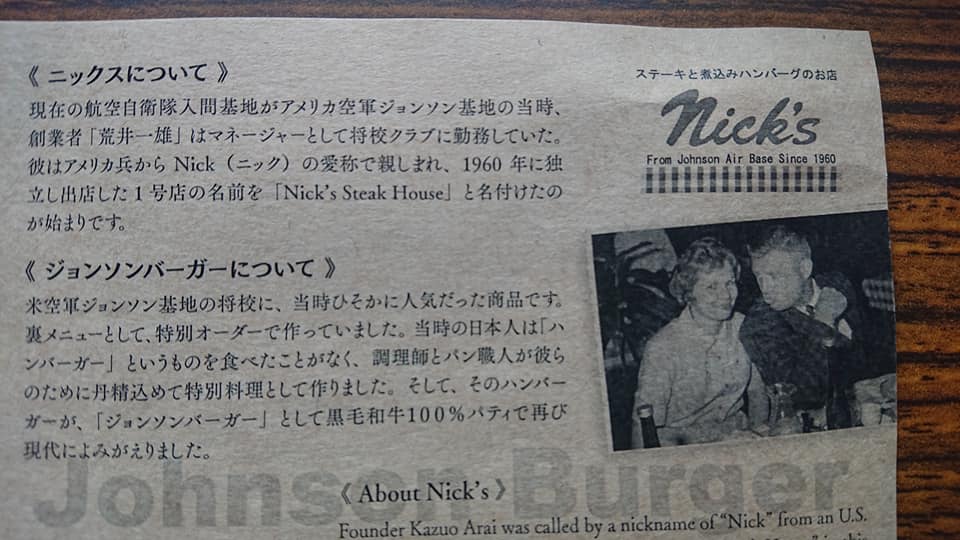 《 ニックスについて 》
現在の航空自衛隊入間基地がアメリカ空軍ジョンソン基地の当時、
創業者「荒井一雄」はマネージャーとして将校クラブに勤務していた。
彼はアメリカ兵から Nick（ニック）の愛称で親しまれ、1960 年に独
立し出店した 1 号店の名前を「Nick's Steak House」と名付けたの
が始まりです。
《 ジョンソンバーガーについて 》
米空軍ジョンソン基地の将校に、当時ひそかに人気だった商品です。
裏メニューとして、特別オーダーで作っていました。当時の日本人は「ハ
ンバーガー」というものを食べたことがなく、調理師とパン職人が彼ら
のために丹精込めて特別料理として作りました。そして、そのハンバー
ガーが、「ジョンソンバーガー」として黒毛和牛100％パティで再び
現代によみがえりました。
ステーキと煮込みハンバーグのお店
Nick's
From Johnson Air Base Since 1960
Johnson Burger
《 About Nick's 》
Founder Kazuo Arai was called by a nickname of “Nick” from an U.S.